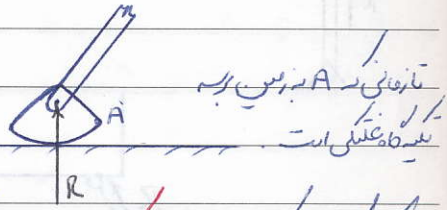 تا زمانی که A به زمین برسه
تکیه گاه غلتکی است.
A
R